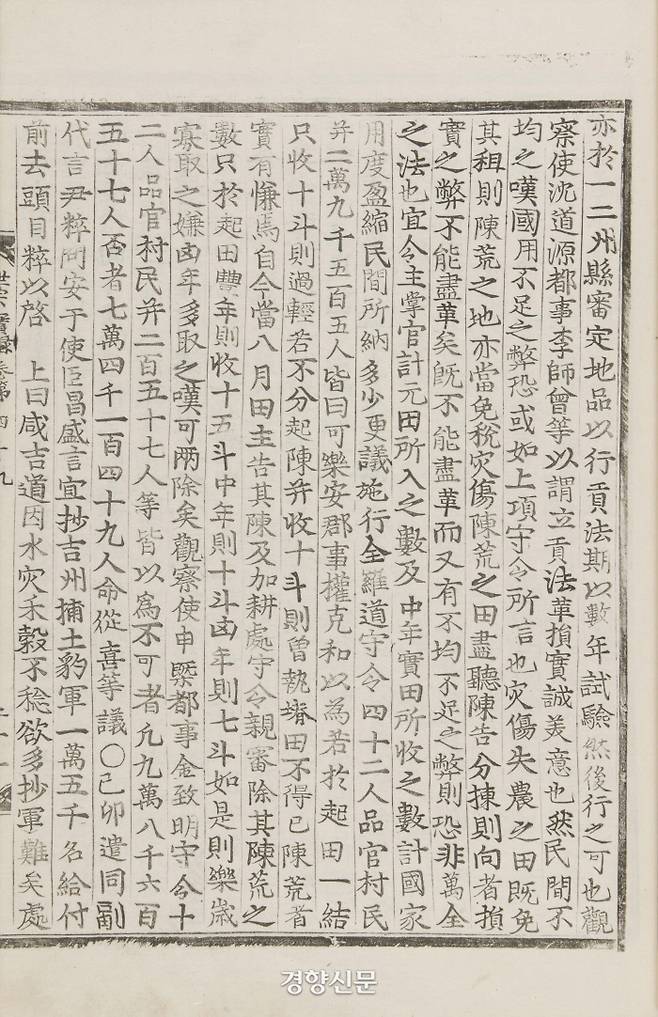 亦於一二州縣審定地品以行貢法期以數年試驗然後行之可也觀
察使沈道源都事李師曾等以謂立貢法革損實誠美意也然民間不
均之嘆國用不足之弊恐或如上項守令所言也灾傷失農之田既免
其租則陳荒之地亦當免稅灾傷陳荒之田盡聽陳告分揀則向者損
實之弊不能盡革矣旣不能盡革而又有不均不足之弊則恐非萬全
之法也宜令主掌官計元田所入之數及中年實田所收之數計國家
用度盈縮民間所納多少更議施行全羅道守令四十二人品官村民
幷二萬九千五百五人皆曰可樂安郡事權克和以爲若於起田一結
只收十斗則過輕若不分起陳幷收十斗則曾執塉田不得已陳荒者
實有慊焉自今當八月田主告其陳及加耕處守令親審除其陳荒之
數只於起田豐年則收十五斗中年則十斗凶年則七斗如是則樂歲
寡取之嫌凶年多取之嘆可兩除矣觀察使申槩都事金致明守令十
二人品官村民幷二百五十七人等皆以爲不可者凡九萬八千六百
五十七人否者七萬四千一百四十九人命從喜等議○己卯遣同副
代言尹粹問安于使臣昌盛言宜抄吉州捕土豹軍一萬五千名給付
前去頭目粹以啓 上曰咸吉道因水灾禾穀不稔欲多抄軍難矣處
世宗實錄卷第四十九
경향신문